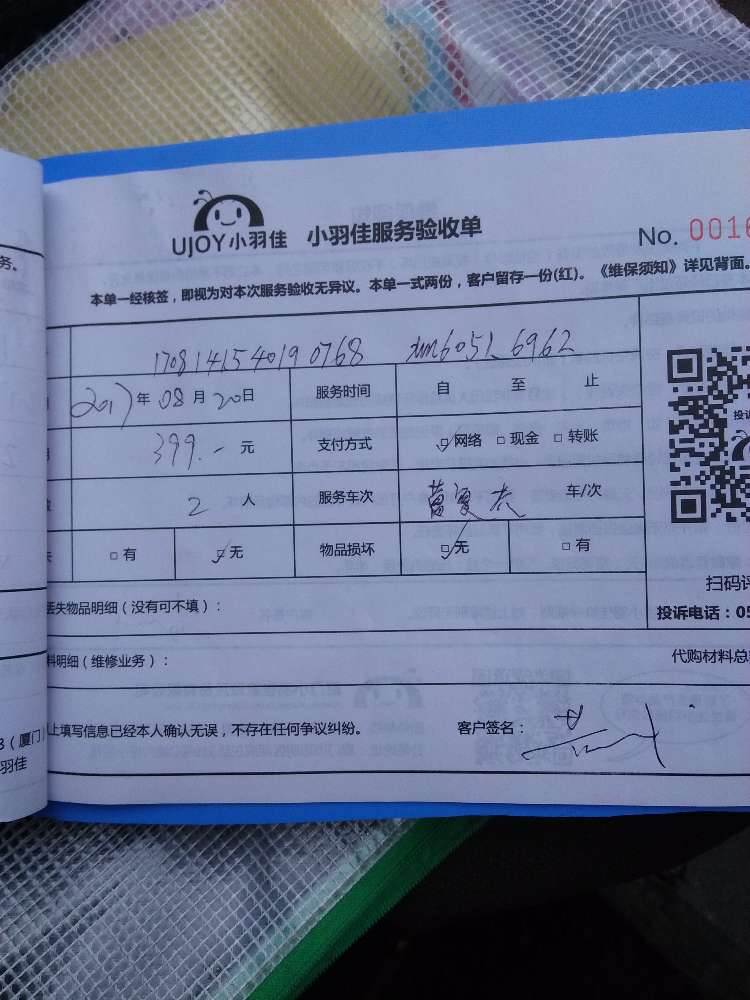 务。
UJOY小羽佳 小羽佳服务验收单
No. 0016
本单一经核签，即视为对本次服务验收无异议。本单一式两份，客户留存一份(红)。《维保须知》详见背面。
170814154019 0768 6051 6962
2017年 08月 20日 服务时间 自 至 止
399.- 元 支付方式 □网络 □现金 □转账
投诉
2 人 服务车次 车/次
□有 □无 物品损坏 □无 □有
扫码评
丢失物品明细（没有可不填）：
投诉电话：05
料明细（维修业务）：
代购材料总
以上填写信息已经本人确认无误，不存在任何争议纠纷。 客户签名：
3（厦门）
羽佳